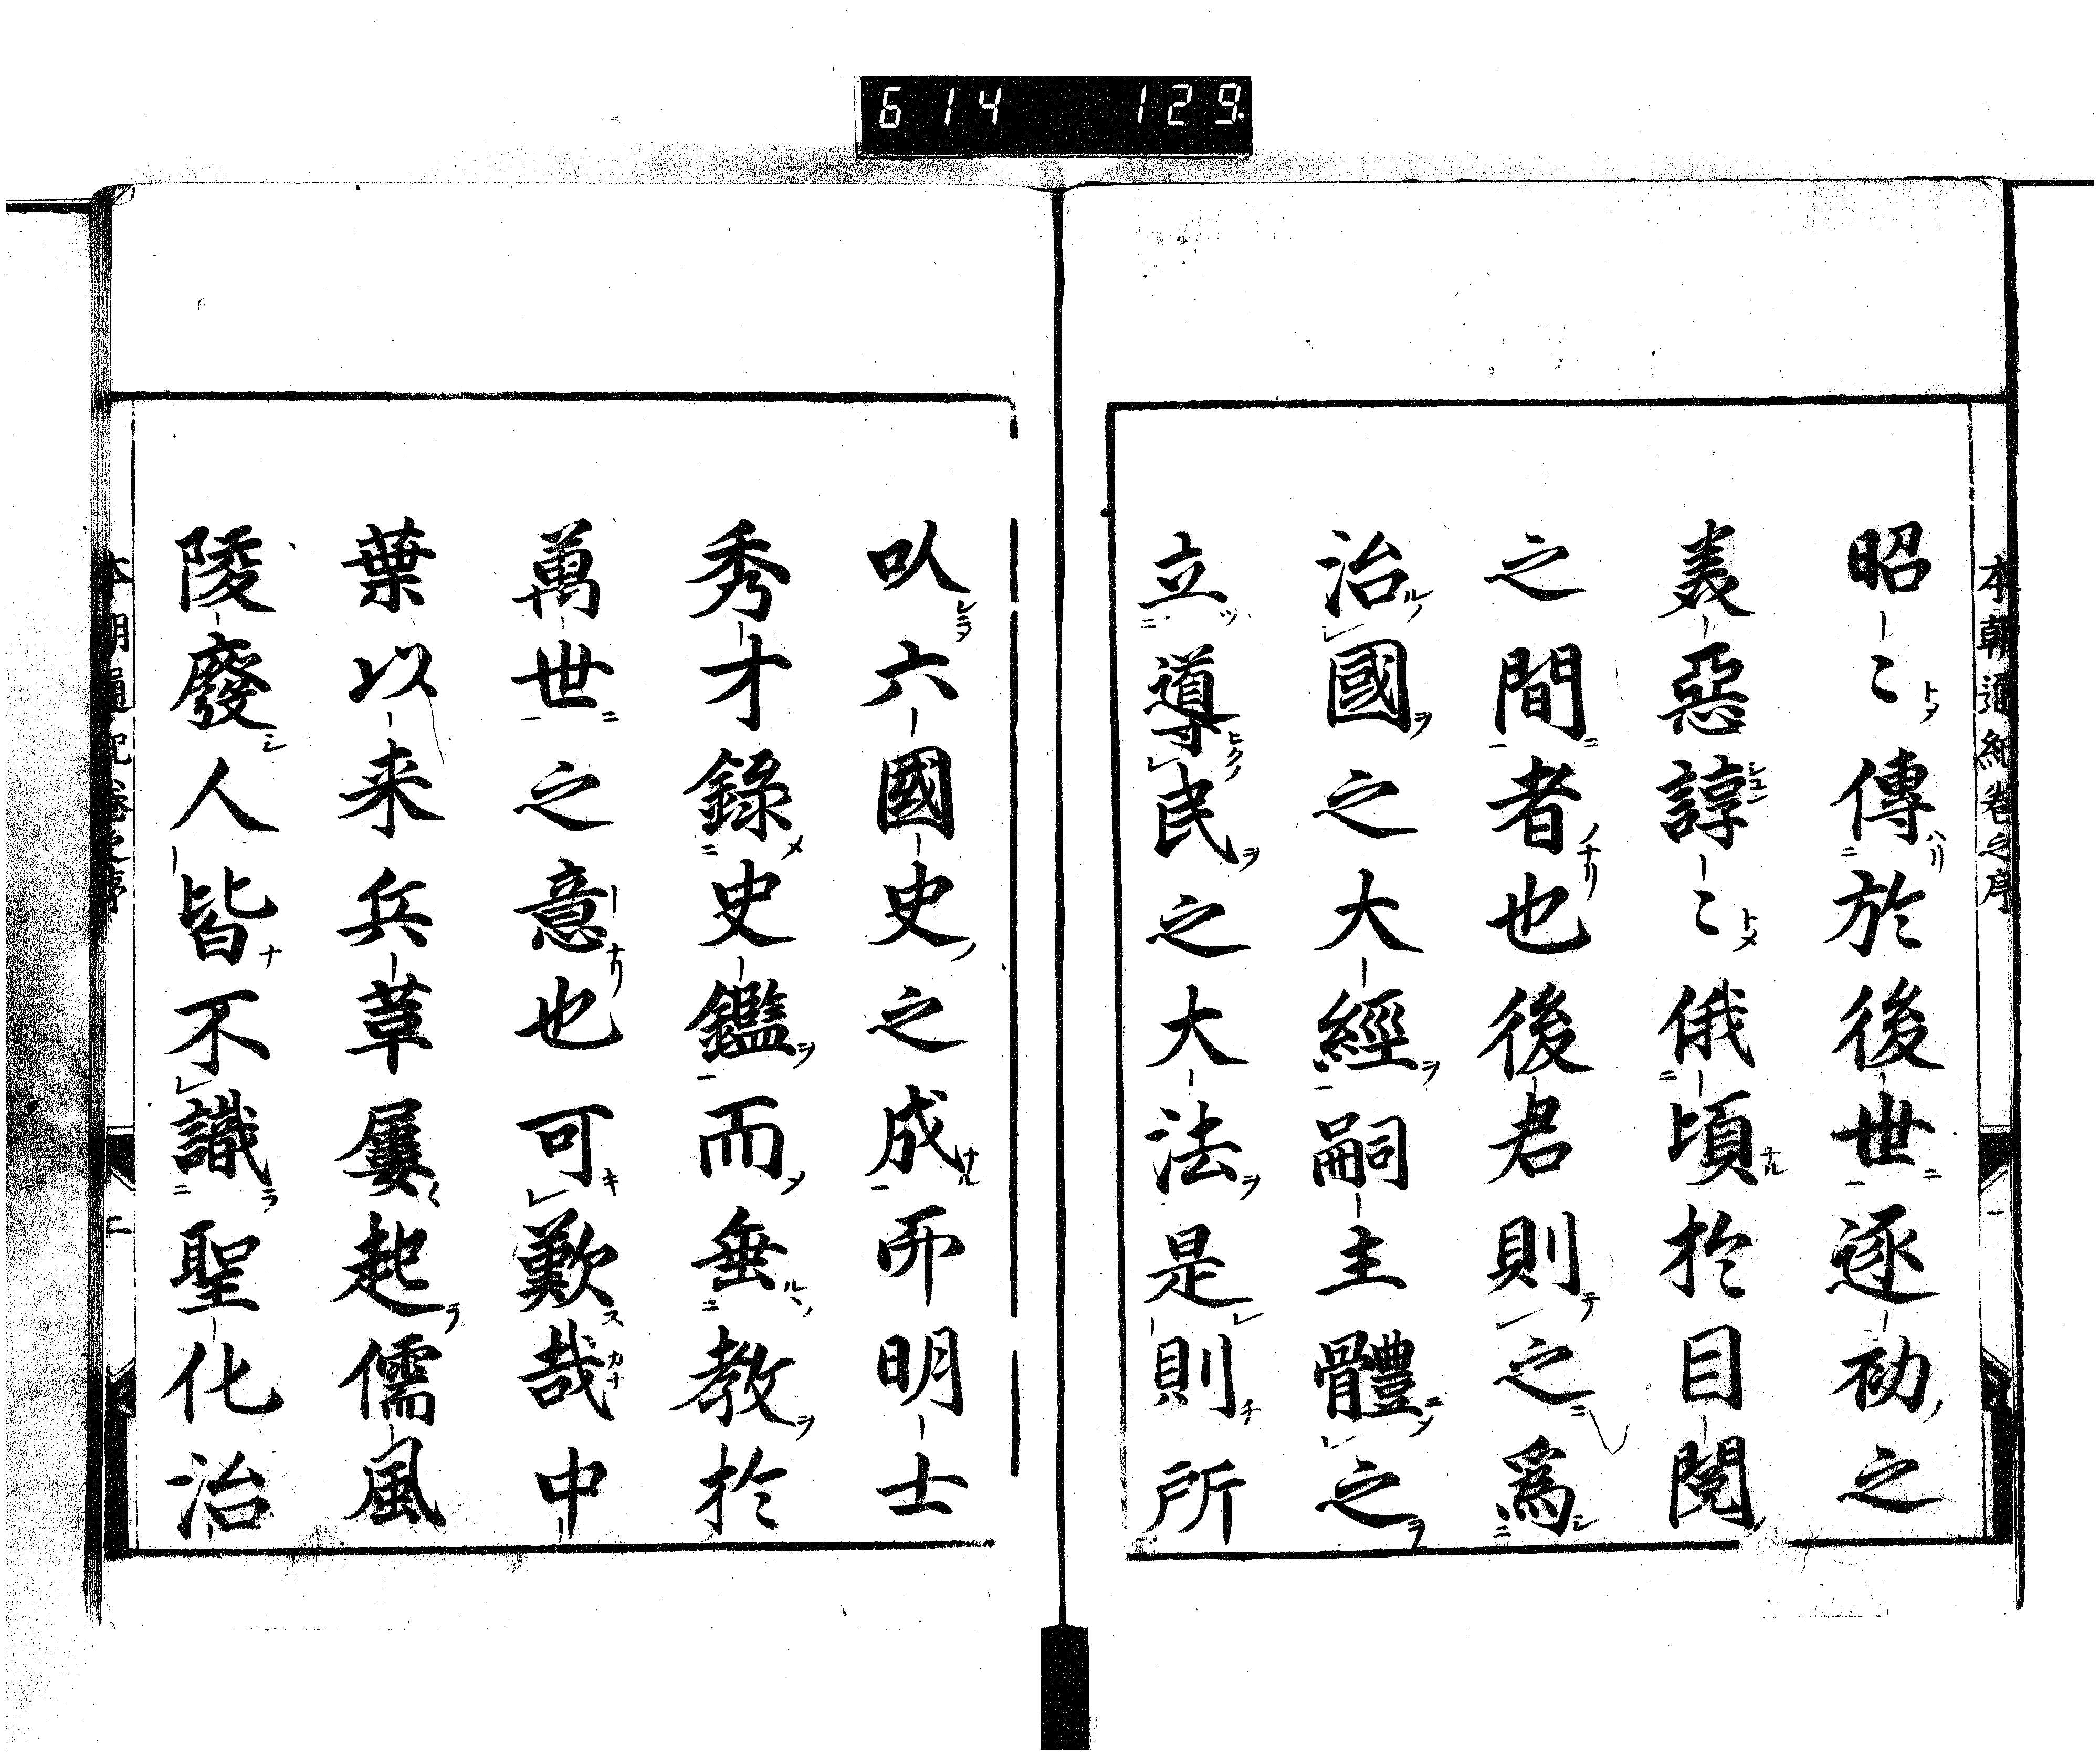 614 129
本朝通紀卷之序 一
昭〻傳於後世逐初之
美惡諄〻俄頃於目閲
之間者也後君則之爲
治國之大經嗣主體之
立導民之大法是則所
以六國史之成而明士
秀才錄史鑑而垂教於
萬世之意也可歎哉中
葉以来兵革屢起儒風
陵廢人皆不識聖化治
本朝通紀卷之序 二